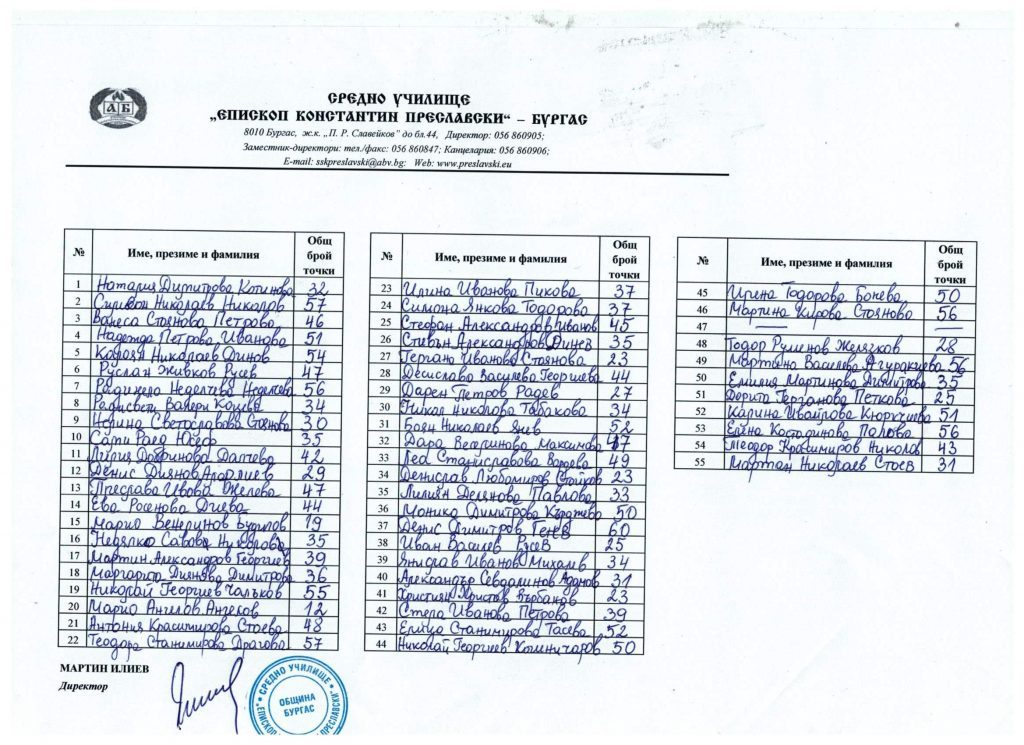 АБ
СРЕДНО УЧИЛИЩЕ
„ЕПИСКОП КОНСТАНТИН ПРЕСЛАВСКИ“ – БУРГАС
8010 Бургас, ж.к. „П. Р. Славейков” до бл.44, Директор: 056 860905;
Заместник-директори: тел./факс: 056 860847; Канцелария: 056 860906;
E-mail: sskpreslavski@abv.bg; Web: www.preslavski.eu
№ Име, презиме и фамилия Общ брой точки
1 Наталия Димитрова Котинова 32
2 Силвен Николаев Николов 57
3 Ванеса Стоянова Петрова 46
4 Надежда Петрова Иванова 51
5 Калоян Николаев Динов 54
6 Руслан Живков Русев 47
7 Неделчева 56
8 Радисвет Валери Колев 34
9 Светославова Стоянова 30
10 Сами Раед Юсеф 35
11 Лилия Добринова Далчева 42
12 Денис Диянов 29
13 Преслава Ивова Желева 47
14 Ева Росенова Дчева 44
15 Марио Венелинов 19
16 Недялко Савова Николова 35
17 Мартин Александров Георгиев 39
18 Маргарита Диянова Димитрова 36
19 Николай Георгиев Чалъков 55
20 Марио Ангелов Ангелов 12
21 Антония Красимирова Стоева 48
22 Теодора Станимирова Драгова 57
№ Име, презиме и фамилия Общ брой точки
23 Илина Иванова Пикова 37
24 Симона Янкова Тодорова 37
25 Стефан Александров Иванов 45
26 Стивън Александров Динев 35
27 Гергана Иванова Стоянова 23
28 Десислава Василева Георгиева 44
29 Дарен Петров Радев 27
30 Никол Николова Табакова 34
31 Боян Николаев Янев 52
32 Дара Веселинова Максимова
33 Лея Станиславова 49
34 Денислав Любомиров Стойков 23
35 Лилия Делянова Павлова 33
36 Моника Димитрова 50
37 Денис Димитров Генев 60
38 Иван Василев Русев 25
39 Янислав Иванов Михалев 34
40 Александър Севдалинов Аданов 31
41 Християн Христов Върбанов 23
42 Стела Иванова Петрова 39
43 Елица Станимирова Тасева 52
44 Николай Георгиев 50
№ Име, презиме и фамилия Общ брой точки
45 Ирена Тодорова Бонева 50
46 Мартина Кирова Стоянова 56
47 — —
48 Тодор Руменов Желязков 28
49 Мартина Василева 56
50 Емилия Мартинова Димитрова 35
51 Дорита Герганова Петкова 25
52 Калина Ивайлова Кюркчиева 51
53 Елена Костадинова Попова 56
54 Теодор Красимиров Николов 43
55 Мартин Николаев Стоев 31
МАРТИН ИЛИЕВ
Директор
СРЕДНО УЧИЛИЩЕ
ОБЩИНА
БУРГАС